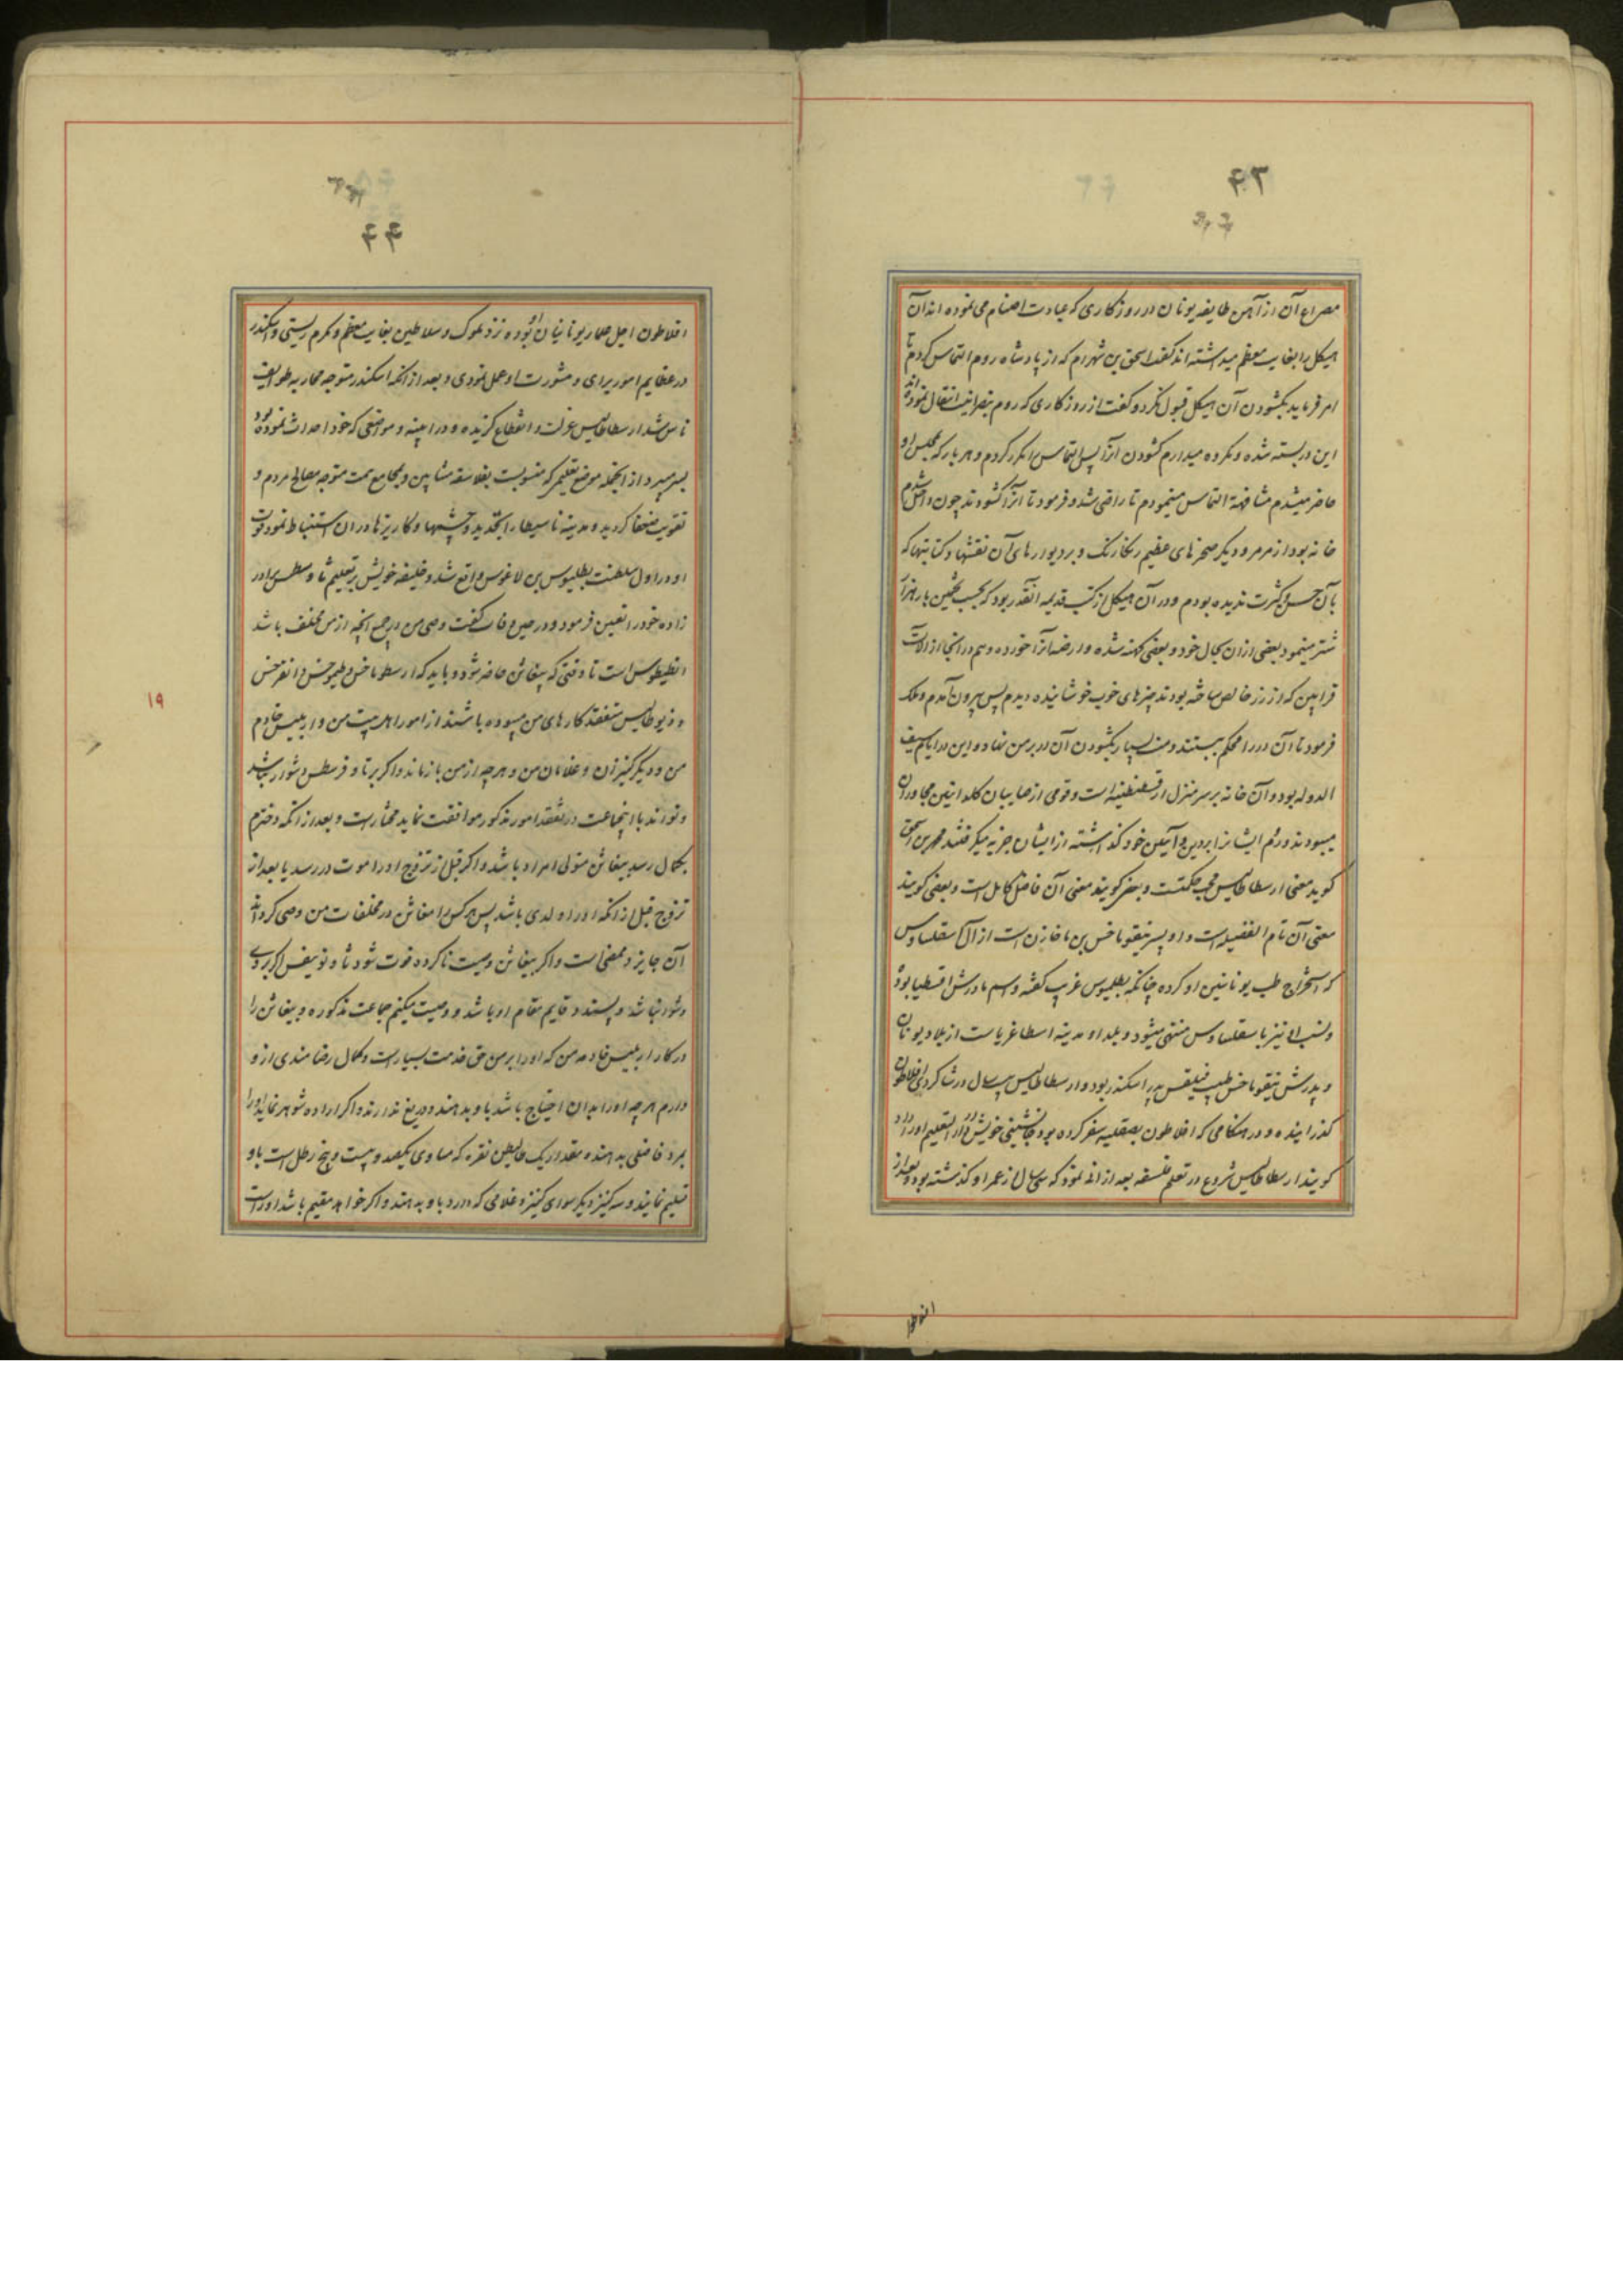 ۴۳
مصراع آن از آهن طایفه یونانان در روزکاری که عبادت اصنام می نموده اند آن
هیکل را بغایت معظم میداشته اند کفت اسحق بن شهرام که از پادشاه روم التماس کردم تا
امر فرماید بکشودن آن هیکل قبول نکرد و کفت از روزکاری که روم بنصرانیت انتقال نموده اند
این در بسته شده و مکروه میدارم کشودن آنرا پس التماس مکرر کردم و هر بار که بمجلس او
حاضر میشدم مشافهة التماس مینمودم تا راضی شد و فرمود تا آنرا کشودند چون داخل شدم
خانه بود از مرمر و دیکر صخرهای عظیم رنکارنک و بر دیوارهای آن نقشها و کتابتها که
بآن حسن و کثرت ندیده بودم و در آن هیکل از کتب قدیمه آنقدر بود که بحسب تخمین بار هزار
شتر مینمود بعضی ازان بحال خود و بعضی کهنه شده و ارضه آنرا خورده و هم در آنجا از آلات
قرابین که از زر خالص ساخته بودند چیزهای خوب خوشاینده دیدم پس بیرون آمدم و ملک
فرمود تا آن در را محکم ببستند و منت بسیار بکشودن آن در بر من نهاد و این در ایام سیف
الدوله بود و آن خانه بر سر منزل از قسطنطنیه است و قومی از صابیان کلدانیین مجاور آن
میبودند و روم ایشانرا بر دین و آیین خود کذاشته از ایشان جزیه میکرفتند محمد بن اسحق
کوید معنی ارسطاطالیس محب حکمتست و بعضی کویند معنی آن فاضل کامل است و بعضی کویند
معنی آن تام الفضیله است و او پسر نیقوماخس بن ماخازن است از آل اسقلبیادس
که استخراج طب یونانیین او کرده چنانکه بطلیموس غریب کفته و اسم مادرش افسطیا بود
و نسب او نیز باسقلبیادس منتهی میشود و بلد او مدینه اسطاغریاست از بلاد یونان
و پدرش نیقوماخس طبیب فیلقس پدر اسکندر بود و ارسطاطالیس سال در شاکردی افلاطون
کذرانیده و در هنکامی که افلاطون بصقلیه سفر کرده بود جانشینی خویش در دار التعلیم او را داد
کویند ارسطاطالیس شروع در تعلم فلسفه بعد از ان نمود که سی سال از عمر او کذشته بود و بعد از
۴۴
افلاطون اجل حکمای یونانیان او بوده نزد ملوک و سلاطین بغایت معظم و مکرم زیستی و اسکندر
در عظایم امور برای و مشورت او عمل نمودی و بعد از انکه اسکندر متوجه محاربه طوایف
ناس شد ارسطاطالیس عزلت و انقطاع کزیده و در اثینه و مواضعی که خود احداث نموده بود
بسر میبرد از انجمله موضع تعلیم که منسوبست بفلاسفه مشایین و بمجامع همت متوجه مصالح مردم و
تقویت ضعفا کردید و مدینه تاسیطار را تجدید و چشمها و کاریزها دران استنباط نمود فوت
او در اول سلطنت بطلیموس بن لاغوس واقع شد و خلیفه خویش بر تعلیم ثاوفسطس برادر
زاده خود را تعین فرمود و در حین وفات کفت وصی من در جمیع انچه از من مخلف باشد
انطیطوس است تا وقتی که نیقانن حاضر شود و باید که ارسطوماخس و طیموخس و انفرخس
و ذیوطالیس متفقد کارهای من میبوده باشند از امور اهل بیت من و اربلیس خادم
من و دیکر کنیزان و غلامان من و هرچه از من باز ماند و اکر بر ثاوفرسطس دشوار نباشد
و تواند با این جماعت در تفقد امور مذکور موافقت نماید مختار است و بعد از انکه دخترم
بکمال رسد نیقانن متولی امر او باشد و اکر قبل از تزوج او را موت در رسد یا بعد از
تزوج قبل از انکه او را ولدی باشد پس هر کس را نیقانن در مخلفات من وصی کرداند
آن جایز و ممضی است و اکر نیقانن وصیت ناکرده فوت شود ثاوفسطس اکر بر وی
دشوار نباشد و پسندد قایم مقام او باشد و وصیت میکنم جماعت مذکوره و نیقانن را
در کار اربلیس خادمه من که او را بر من حق خدمت بسیار است و کمال رضامندی ازو
دارم هرچه او را بدان احتیاج باشد باو بدهند و دریغ ندارند و اکر اراده شوهر نماید او را
بمرد فاضلی بدهند و مقدار یک طالیطن نقره که مساوی یکصد و بیست و پنج رطل است باو
تسلیم نمایند و سه کنیز دیکر سوای کنیز و غلامی که دارد باو بدهند و اکر خواهد مقیم باشد او راست
۱۹